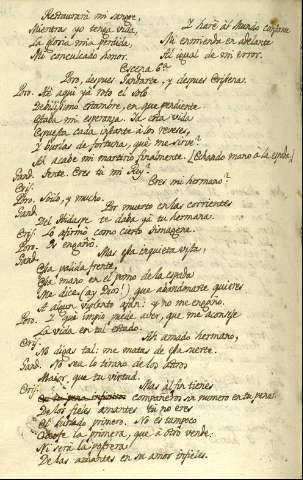 Restaurará mi sangre,
Mientras yo tenga vida,
La gloria mia perdida,
Mi conculcado honor.
Y haré al Mundo
Mi enmienda en adelante
Al igual de mi error.
Escena 6ª
Poro, despues Gandarte, y despues Erixena.
Poro. He aqui ya roto el solo
Debilissimo estambre, en que pendiente
Estaba mi esperanza. Il esta vida
Expuesta cada instante à los reveses,
Y burlas de fortuna, què me sirve?
Ah acabe mi martirio finalmente. (Echando mano a la espada)
Gand. Sente. Eres tù mi Rey?
Erij. Eres mi hermano?
Poro. Soilo, y mucho.
Gand. Por muerto en las corrientes
Del Hidaspe te daba yà tu hermana.
Erij. Lo afirmò como cierto Timagene.
Poro. Os engañó.
Gand. Mas esta inquieta vista,
Esta palida frente,
Essa mano en el pomo de la espada
Me dice (ay Dios!) que abandonarte quieres
A algun violento afan: y no me engaño.
Poro. Y què impio puede aver, que me aconseje
La vida en tal estado?
Erij. Ah amado hermano,
No digas tal: me matas de essa suerte.
Gand. No sea lo tirano de los Astros
Maior, que tu virtud.
Erij. Mas al fin tienes
compañeros sin numero en tu pena.
De los fieles amantes tù no eres
El burlado primero. No es tampoco
la primera, que à otro vende:
Ni serà la postrera
De las amantes en su amor infieles.